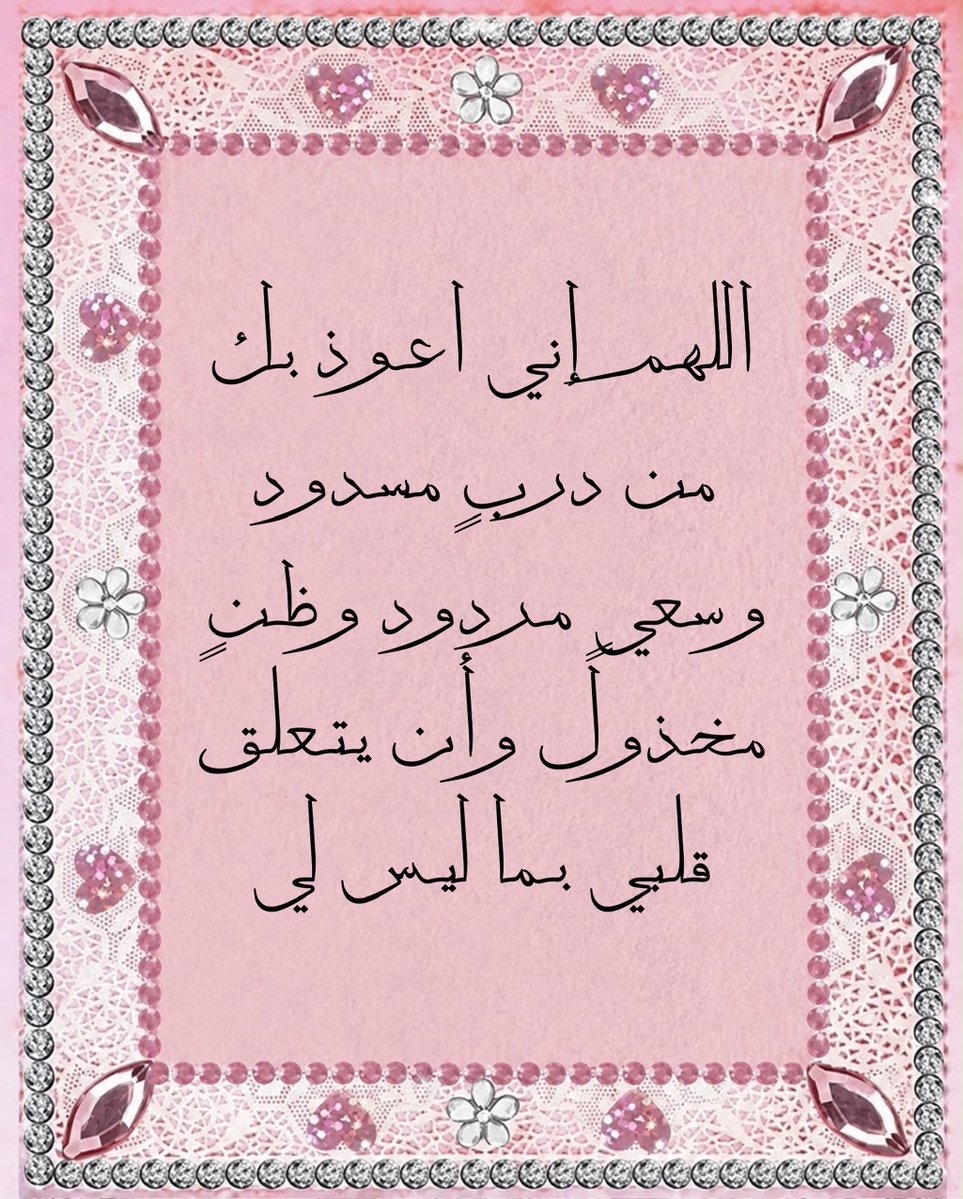 اللهم إني اعوذ بك
من دربٍ مسدود
وسعيٍ مردود وظنٍ
مخذولٍ وأن يتعلق
قلبي بما ليس لي